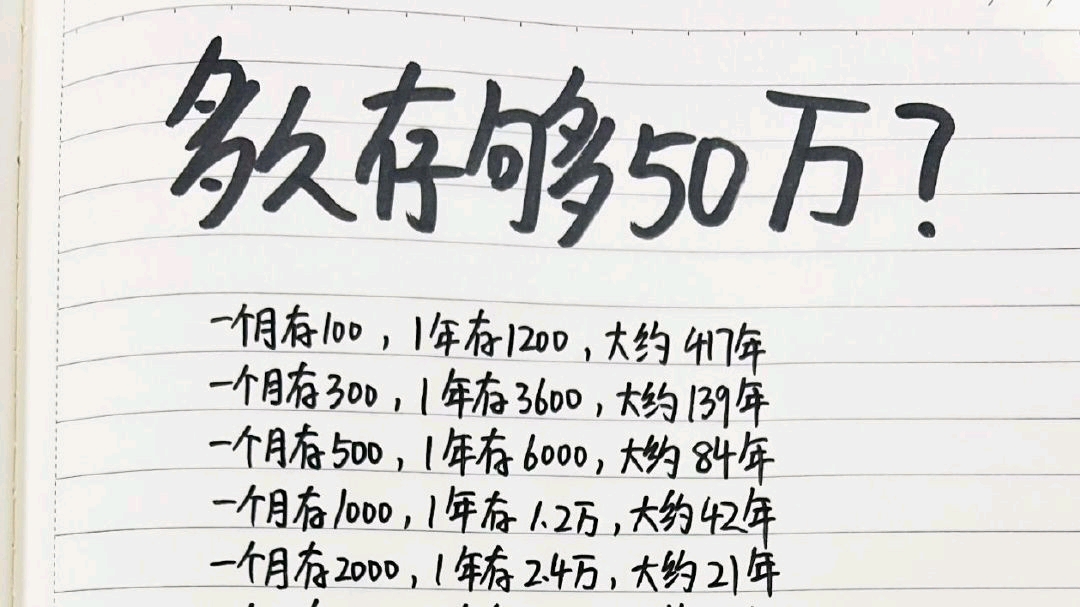 多久存够50万?
一个月存100，1年存1200，大约417年
一个月存300，1年存3600，大约139年
一个月存500，1年存6000，大约84年
一个月存1000，1年存1.2万，大约42年
一个月存2000，1年存2.4万，大约21年